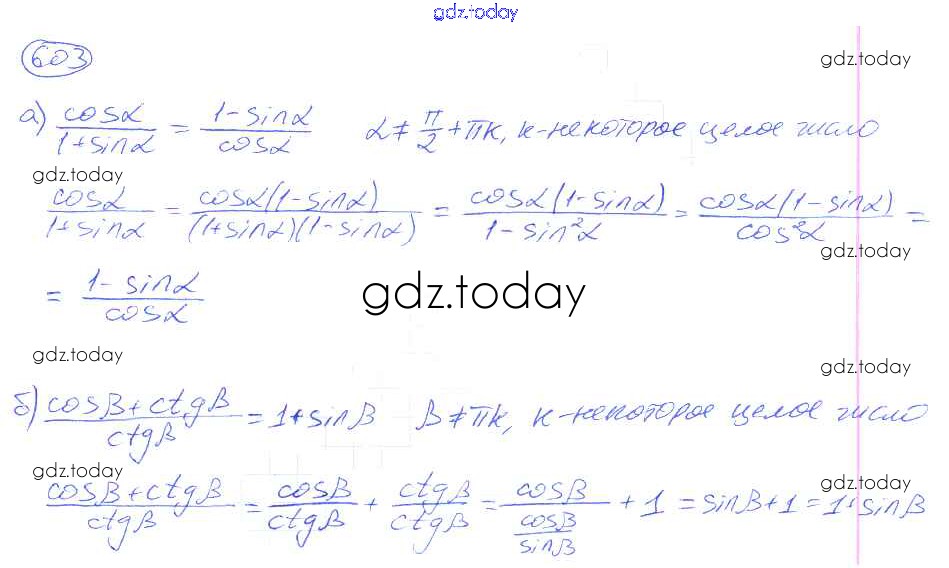 gdz.today
603
gdz.today
а) cosα/(1+sinα) = (1-sinα)/cosα α ≠ π/2 + πк, к-некоторое целое число
gdz.today
cosα/(1+sinα) = cosα(1-sinα)/((1+sinα)(1-sinα)) = cosα(1-sinα)/(1-sin²α) = cosα(1-sinα)/cos²α =
gdz.today
= (1-sinα)/cosα
gdz.today
gdz.today
gdz.today
б) (cosβ+ctgβ)/ctgβ = 1+sinβ β ≠ πк, к-некоторое целое число
gdz.today
gdz.today
(cosβ+ctgβ)/ctgβ = cosβ/ctgβ + ctgβ/ctgβ = cosβ/(cosβ/sinβ) + 1 = sinβ+1 = 1+sinβ